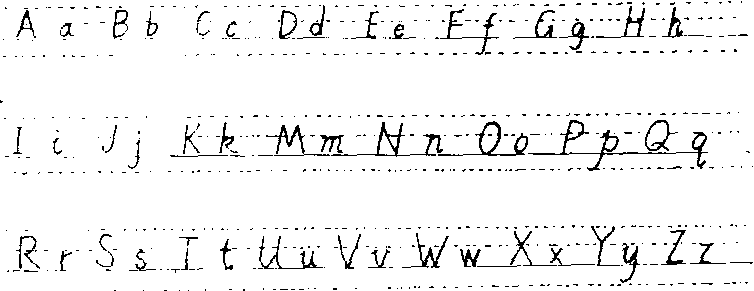 A a B b C c D d E e F f G g H h
I i J j K k M m N n O o P p Q q
R r S s T t U u V v W w X x Y y Z z